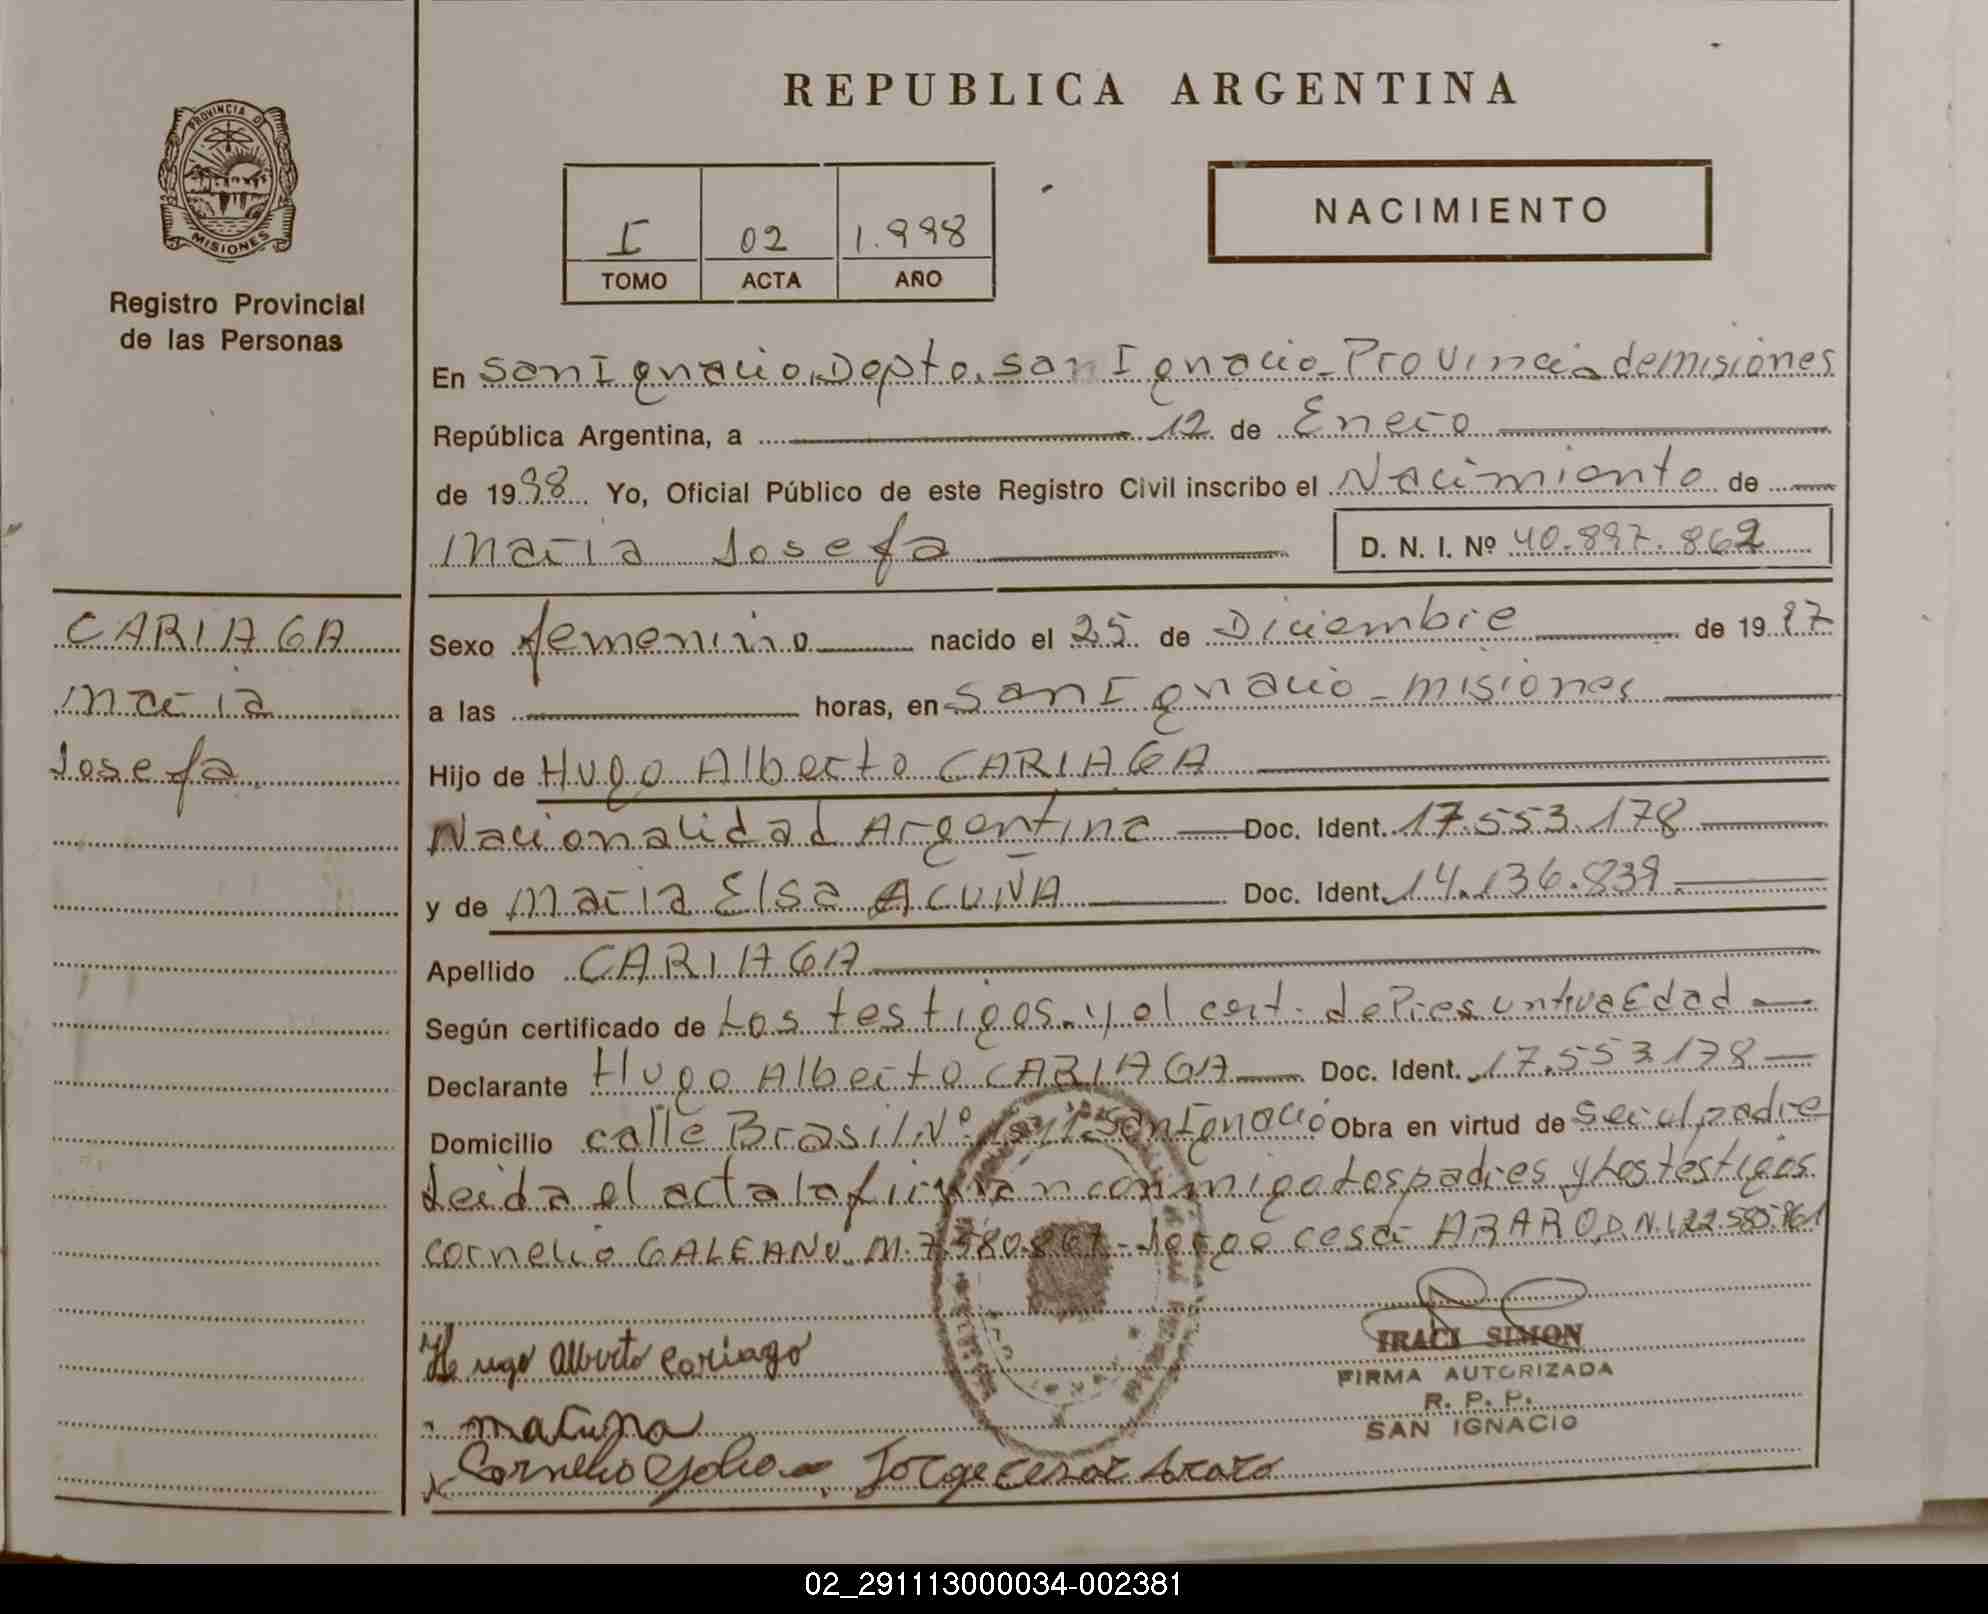 REPUBLICA ARGENTINA
PROVINCIA D
MISIONES
Registro Provincial
de las Personas
I 02 1.998
TOMO ACTA AÑO
NACIMIENTO
En San Ignacio, Dopto. San Ignacio - Provincia de misiones
República Argentina, a 12 de Enero
de 1998 Yo, Oficial Público de este Registro Civil inscribo el Nacimiento de
Maria Josefa D. N. I. Nº 40.897.862
CARIAGA
Maria
Josefa
Sexo femenino nacido el 25 de Diciembre de 1997
a las horas, en San Ignacio - misiones
Hijo de Hugo Alberto CARIAGA
Nacionalidad Argentina Doc. Ident. 17.553.178
y de Maria Elsa ACUÑA Doc. Ident. 14.136.839
Apellido CARIAGA
Según certificado de Los testigos y el cert. de Presuntiva Edad
Declarante Hugo Alberto CARIAGA Doc. Ident. 17.553.178
Domicilio calle Brasil Nº San Ignacio Obra en virtud de ser el padre
Leida el acta la firman conmigo Los padres y Los testigos
Cornelio GALEANO M. Jorge cesar ARARO, D.N.I. 22.585.861
Hugo Alberto Cariago
IRACI SIMON
FIRMA AUTORIZADA
R. P. P.
SAN IGNACIO
Cornelio Jorge cesar Araro
02_291113000034-002381